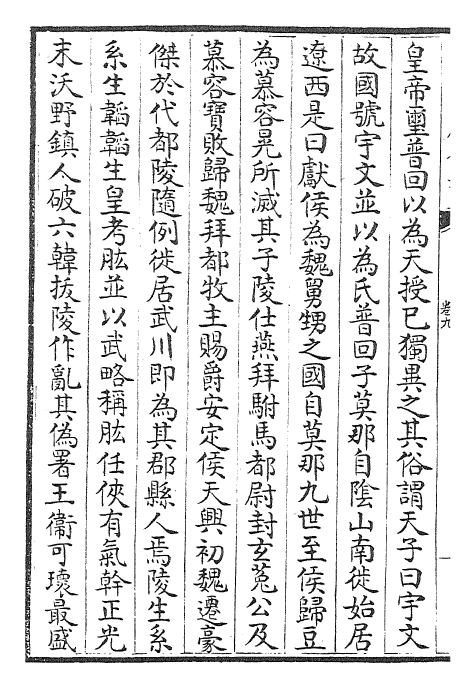 皇帝璽普回以為天授已獨異之其俗謂天子曰宇文
故國號宇文並以為氏普回子莫那自陰山南徙始居
遼西是曰獻侯為魏舅甥之國自莫那九世至侯歸豆
為慕容晃所滅其子陵仕燕拜駙馬都尉封玄菟公及
慕容寶敗歸魏拜都牧主賜爵安定侯天興初魏遷豪
傑於代都陵隨例徙居武川即為其郡縣人焉陵生系
系生韜韜生皇考肱並以武略稱肱任俠有氣幹正光
末沃野鎮人破六韓拔陵作亂其偽署王衞可瓌最盛
卷九